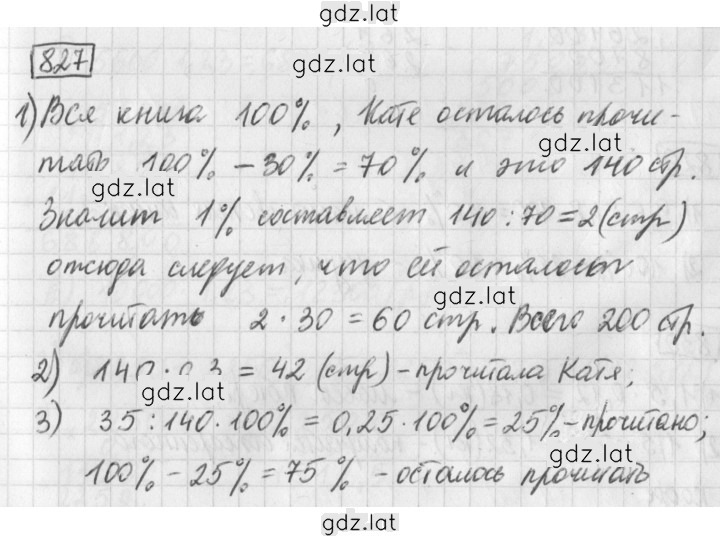 gdz.lat
827
gdz.lat
1) Вся книга 100%, Кате осталось прочи-
gdz.lat
тать 100% - 30% = 70% и это 140 стр.
gdz.lat
Значит 1% составляет 140 : 70 = 2 (стр)
отсюда следует, что ей осталось
gdz.lat
прочитать 2 · 30 = 60 стр. Всего 200 стр.
2) 140 · 0,3 = 42 (стр) - прочитала Катя;
gdz.lat
3) 35 : 140 · 100% = 0,25 · 100% = 25% - прочитано;
100% - 25% = 75% - осталось прочитать
gdz.lat